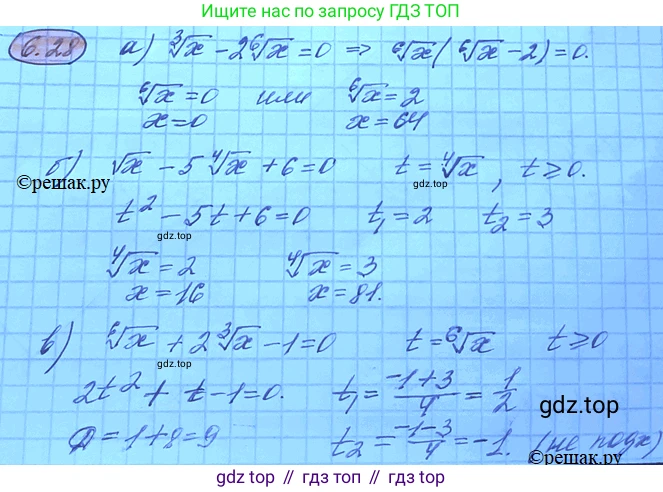 Ищите нас по запросу ГДЗ ТОП
6.28 а) ∛x - 2⁶√x = 0 ⇒ ⁶√x(⁶√x - 2) = 0.
⁶√x = 0 или ⁶√x = 2
x = 0 x = 64
gdz.top
б) √x - 5⁴√x + 6 = 0 t = ⁴√x, t ≥ 0.
©решак.ру gdz.top
t² - 5t + 6 = 0 t₁ = 2 t₂ = 3
gdz.top gdz.top
⁴√x = 2 ⁴√x = 3
x = 16 x = 81.
gdz.top
в) ⁶√x + 2∛x - 1 = 0 t = ⁶√x t ≥ 0
gdz.top
2t² + t - 1 = 0. t₁ = (-1+3)/4 = 1/2
gdz.top
D = 1 + 8 = 9 t₂ = (-1-3)/4 = -1. (не подх)
©решак.ру
gdz.top // гдз.топ // gdz.top // гдз.топ